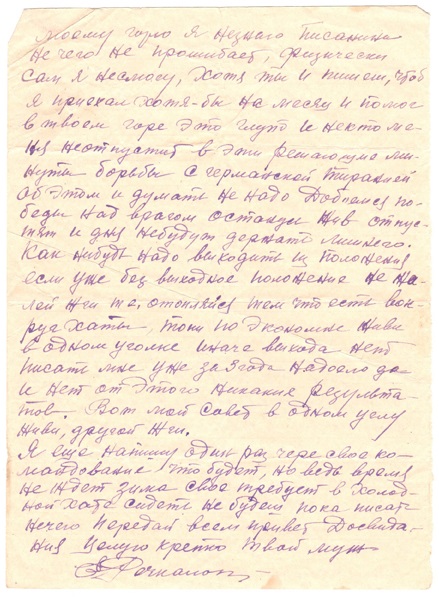 моему горю я незнаю писанина
не чего не прошибает, физически
сам я несмогу, хотя ты и пишеш, чтоб
я приехал хотя-бы на месяц и помог
в твоем горе это глупо и некто ме-
ня неотпустит в эти решающие ми-
нуты борьбы с германской тиранией
об этом и думать не надо Добьемся по-
беды над врагом останусь жив отпус-
тят и дня небудут держать лишнего.
Как нибудь надо выходить из положения
если уже без выходное положение не жа-
лей жги те, отопляйся тем что есть вок-
руг хаты, топи по экономие живи
в одном уголке иначе выхода нет
писать мне уже за 3 года надоело да
и нет от этого никакие результа-
тов. Вот мой совет в одном углу
живи, другой жги.
Я еще напишу один раз чере свое ко-
мандование что будет, но ведь время
не ждет зима свое требует в холод-
ной хате сидеть не будеш пока писать
нечего передай всем привет Досвида-
ния целую крепко твой муж